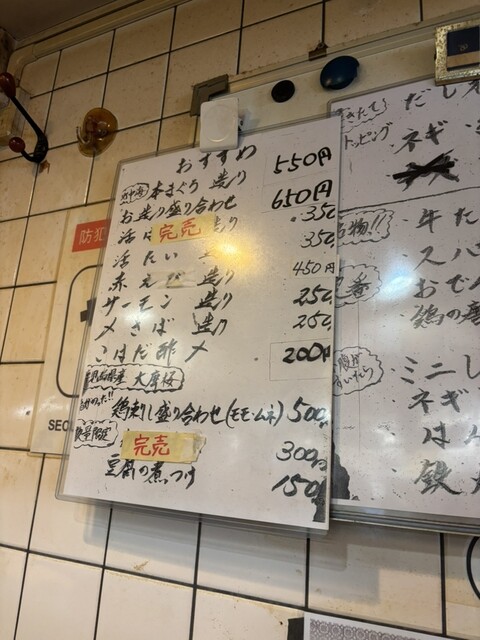 おすすめ
本まぐろ 造り 550円
お造り盛り合わせ 650円
活は 完売 造り 350
活たい 350
赤えび 造り 450円
サーモン 造り 250
〆さば 造り 250
こはだ酢〆 200円
大摩桜
鶏刺し盛り合わせ(モモ・ムネ) 500円
数量限定
完売 300円
豆腐の煮つけ 150
防犯
トッピング
ネギ
名物!!
牛た
スパ
定番
おでん
鶏の唐
ミニし
ネギ
は
鉄